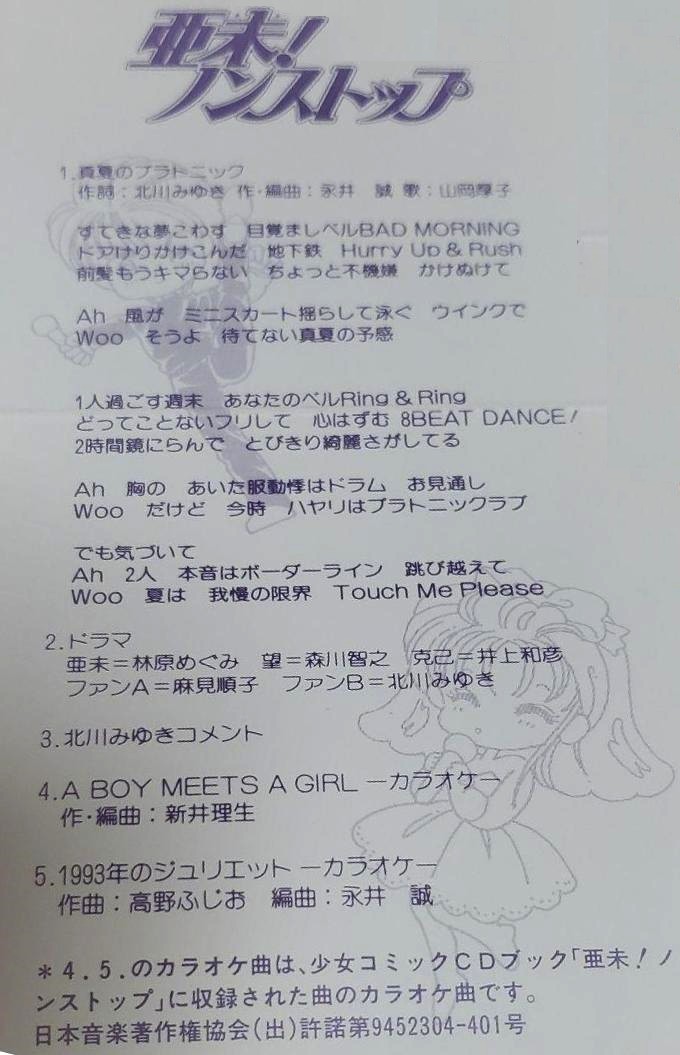 亜未!
ノンストップ
1.真夏のプラトニック
作詞:北川みゆき 作・編曲:永井 誠 歌:山岡厚子
すてきな夢こわす 目覚ましベルBAD MORNING
ドアけりかけこんだ 地下鉄 Hurry Up & Rush
前髪もうキマらない ちょっと不機嫌 かけぬけて
Ah 風が ミニスカート揺らして泳ぐ ウインクで
Woo そうよ 待てない真夏の予感
1人過ごす週末 あなたのベルRing & Ring
どってことないフリして 心はずむ 8BEAT DANCE!
2時間鏡にらんで とびきり綺麗さがしてる
Ah 胸の あいた服動悸はドラム お見通し
Woo だけど 今時 ハヤリはプラトニックラブ
でも気づいて
Ah 2人 本音はボーダーライン 跳び越えて
Woo 夏は 我慢の限界 Touch Me Please
2.ドラマ
亜未=林原めぐみ 望=森川智之 克己=井上和彦
ファンA=麻見順子 ファンB=北川みゆき
3.北川みゆきコメント
4.A BOY MEETS A GIRL ーカラオケー
作・編曲:新井理生
5.1993年のジュリエット ーカラオケー
作曲:高野ふじお 編曲:永井 誠
*4.5.のカラオケ曲は、少女コミックCDブック「亜未!ノ
ンストップ」に収録された曲のカラオケ曲です。
日本音楽著作権協会(出)許諾第9452304-401号